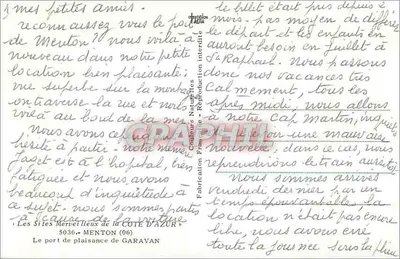 mes petites amies.
reconnaissez vous le port
de Menton? nous voilà à
nouveau dans notre petite
location bien plaisante:
vue superbe sur la montagne
on traverse la rue et nous
voilà au bord de la mer
Nous avons ce
hésité à partir: notre
Jaget est à l'hôpital, très
fatiguée et nous avons
beaucoup d'inquiétude à
sujet. nous sommes partis
à cause de la voiture
"Les Sites Merveilleux de la COTE D'AZUR"
5036 - MENTON (06)
Le port de plaisance de GARAVAN
Couleurs Naturelles
Fabrication Française - Reproduction interdite
le billet était pris depuis 2
mois. pas moyen de différer
le départ. et les enfants en
auront besoin en juillet à
St Raphaël. Nous passons
donc nos vacances très
calmement, tous les
après midi, nous allons
à notre Cap Martin, inquiets
pour une mauvaise
nouvelle; dans ce cas, nous
reprendrions le train aussitôt
nous sommes arrivés
vendredi dernier par un
temps épouvantable, la
location n'était pas encore
libre, nous avons erré
toute la journée sous la pluie